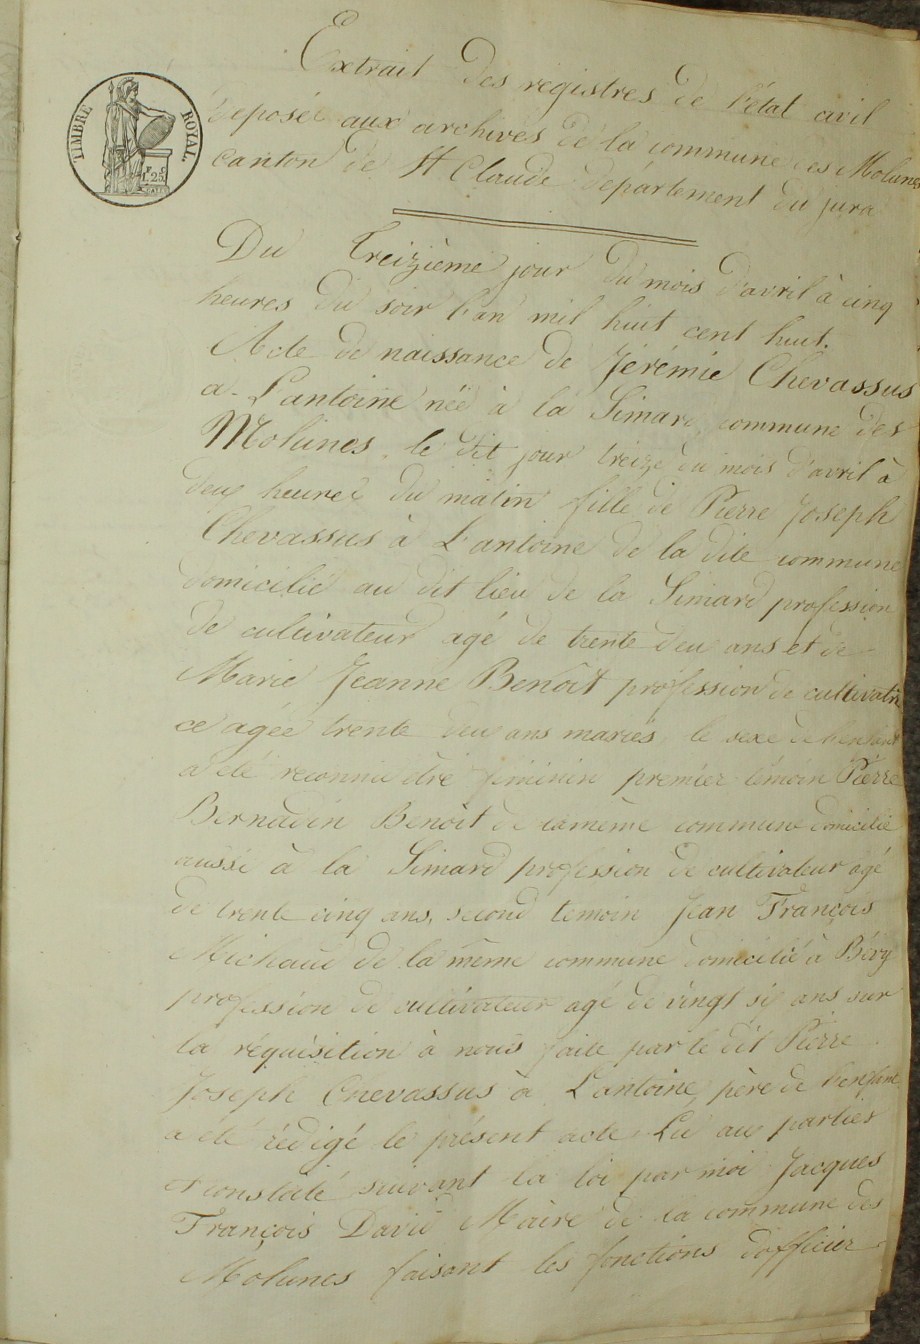 TIMBRE ROYAL
25
Extrait des registres de l'état civil
déposée aux archives de la commune des Molunes
canton de St Claude département du jura
Du Treizième jour du mois d'avril à cinq
heures du soir l'an mil huit cent huit.
Acte de naissance de Jérémie Chevassus
a-L'antoine née à la Simard commune des
Molunes. le dit jour treize du mois d'avril à
deux heures du matin fille de Pierre Joseph
Chevassus à L'antoine de la dite commune
domicilié au dit lieu de la Simard profession
de cultivateur agé de trente deu ans et de
Marie Jeanne Benoît profession de cultivatri
ce agée trente deu ans mariés, le sexe de l'enfant
a été reconnu être féminin premier témoin Pierre
Bernadin Benoit de la même commune domicilié
aussi à la Simard profession de cultivateur agé
de trente cinq ans, second temoin Jean François
Michaud de la même commune domicilié à
profession de cultivateur agé de vingt six ans sur
la réquisition à nous faite par le dit Pierre
Joseph Chevassus à L'antoine, père de l'enfant
a été rédigé le présent acte Lu aux parties
et constaté suivant la loi par moi Jacques
François David Maire de la commune des
Molunes faisant les fonctions d'officier